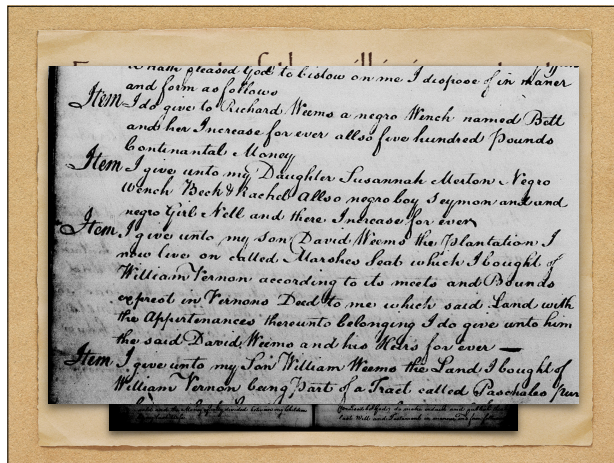 it Hath pleased God to bislow on me I dispose of in maner
and form as follows
Item I do give to Richard Weems a negro Wench named Bett
and her Increase for ever allso five hundred Pounds
Continantal Money
Item I give unto my Daughter Susannah Merton Negro
Wench Beck & Rachel Allso negro boy Seymon and and
negro Girl Nell and there Increase for ever
Item I give unto my son David Weems the Plantation I
now live on called Marshes Seat which I bought of
William Vernon according to its meets and Bounds
exprest in Vernons Deed to me which said Land with
the Appirtenances thereunto belonging I do give unto him
the said David Weems and his Heirs for ever —
Item I give unto my Son William Weems the Land I bought of
William Vernon being Part of a Tract called Paschales Pur